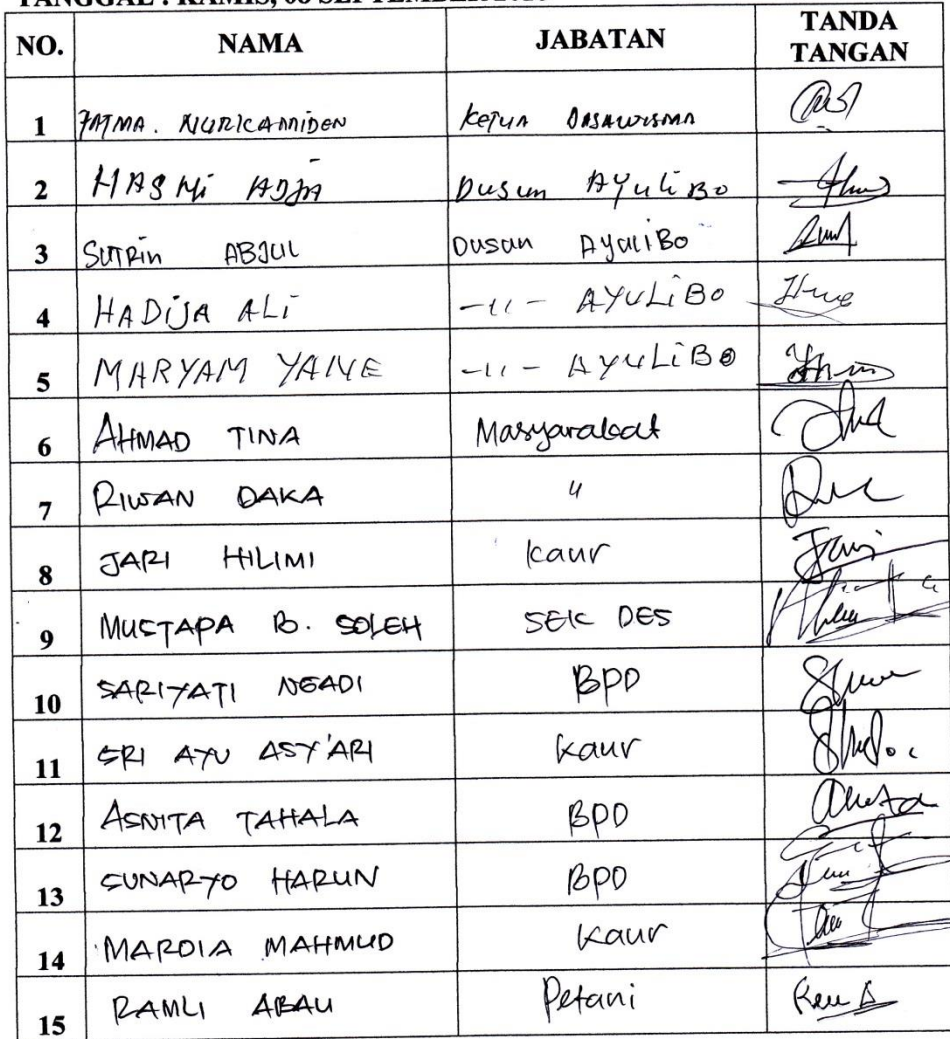 TANGGAL : KAMIS, 08 SEPTEMBER
NO. NAMA JABATAN TANDA TANGAN
1 FATMA. NURKAMIDEN KETUA DASAWISMA
2 HASNI ADJA DUSUN AYULIBO
3 SUTRIN ABJUL DUSUN AYULIBO
4 HADIJA ALI -11- AYULIBO
5 MARYAM YANE -11- AYULIBO
6 AHMAD TINA Masyarakat
7 RIWAN DAKA "
8 JARI HILIMI Kaur
9 MUSTAPA B. SOLEH SEK DES
10 SARIYATI NGADI BPD
11 SRI AYU ASY'ARI Kaur
12 ASNITA TAHALA BPD
13 SUNARYO HARUN BPD
14 MARDIA MAHMUD Kaur
15 RAMLI ABAU Petani